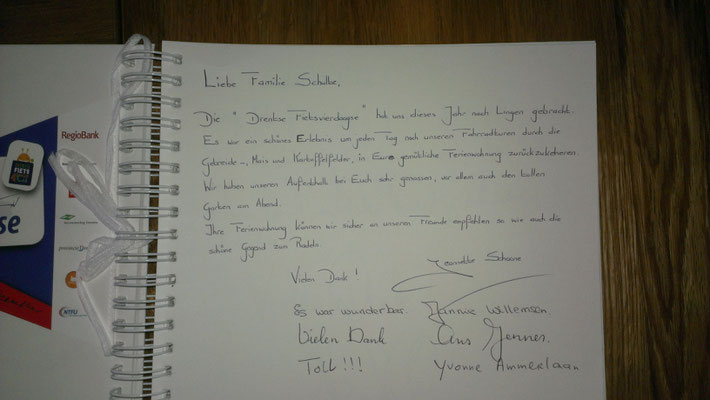 Liebe Familie Schulbe,
Die "Drentse Fietsvierdaagse" hat uns dieses Jahr nach Lingen gebracht.
Es war ein schönes Erlebnis um jeden Tag nach unseren Fahrradtouren durch die
Getreide-, Mais und Kartoffelfelder, in Eure gemütliche Ferienwohnung zurückzukehren.
Wir haben unseren Aufenthalt bei Euch sehr genossen, vor allem auch den tollen
Garten am Abend.
Ihre Ferienwohnung können wir sicher an unseren Freunde empfehlen so wie auch die
schöne Gegend zum Radeln.
Vielen Dank! Schoone
Es war wunderbar. Jannie Willemsen
Vielen Dank Ans
Toll!!! Yvonne Ammerlaan
RegioBank
FIETS
se
NTFU